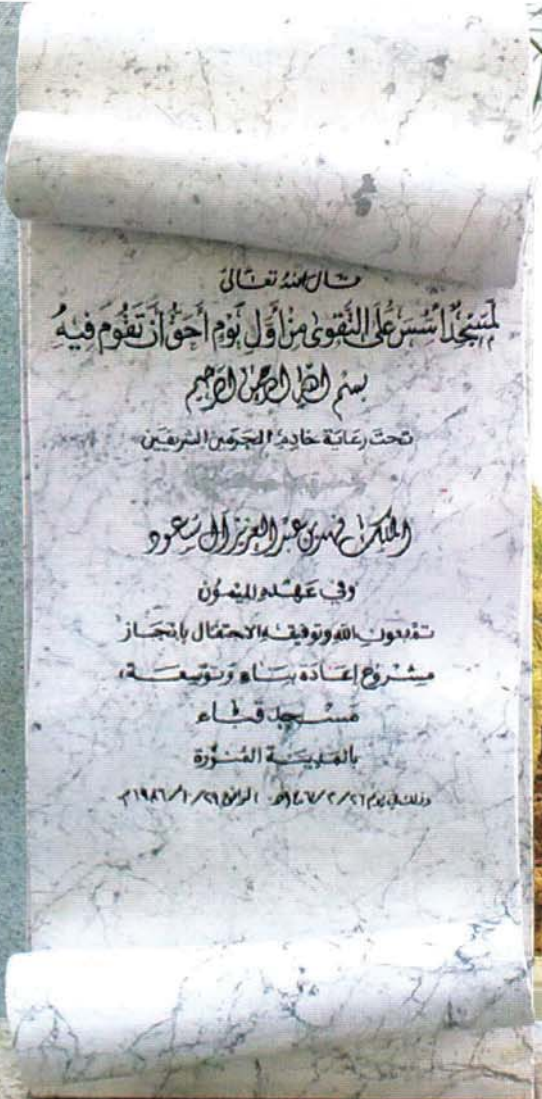 قال الله تعالى
لَمَسْجِدٌ أُسِّسَ عَلَى التَّقْوَىٰ مِنْ أَوَّلِ يَوْمٍ أَحَقُّ أَنْ تَقُومَ فِيهِ
بسم الله الرحمن الرحيم
تحت رعاية خادم الحرمين الشريفين
الملك فهد بن عبد العزيز آل سعود
وفي عهده الميمون
تم بعون الله وتوفيقه الاحتفال بإنجاز
مشروع إعادة بناء وتوسعة
مسجد قباء
بالمدينة المنورة
وذلك في يوم ٢٦/٢/١٤٠٧هـ الموافق ٢٩/١٠/١٩٨٦م